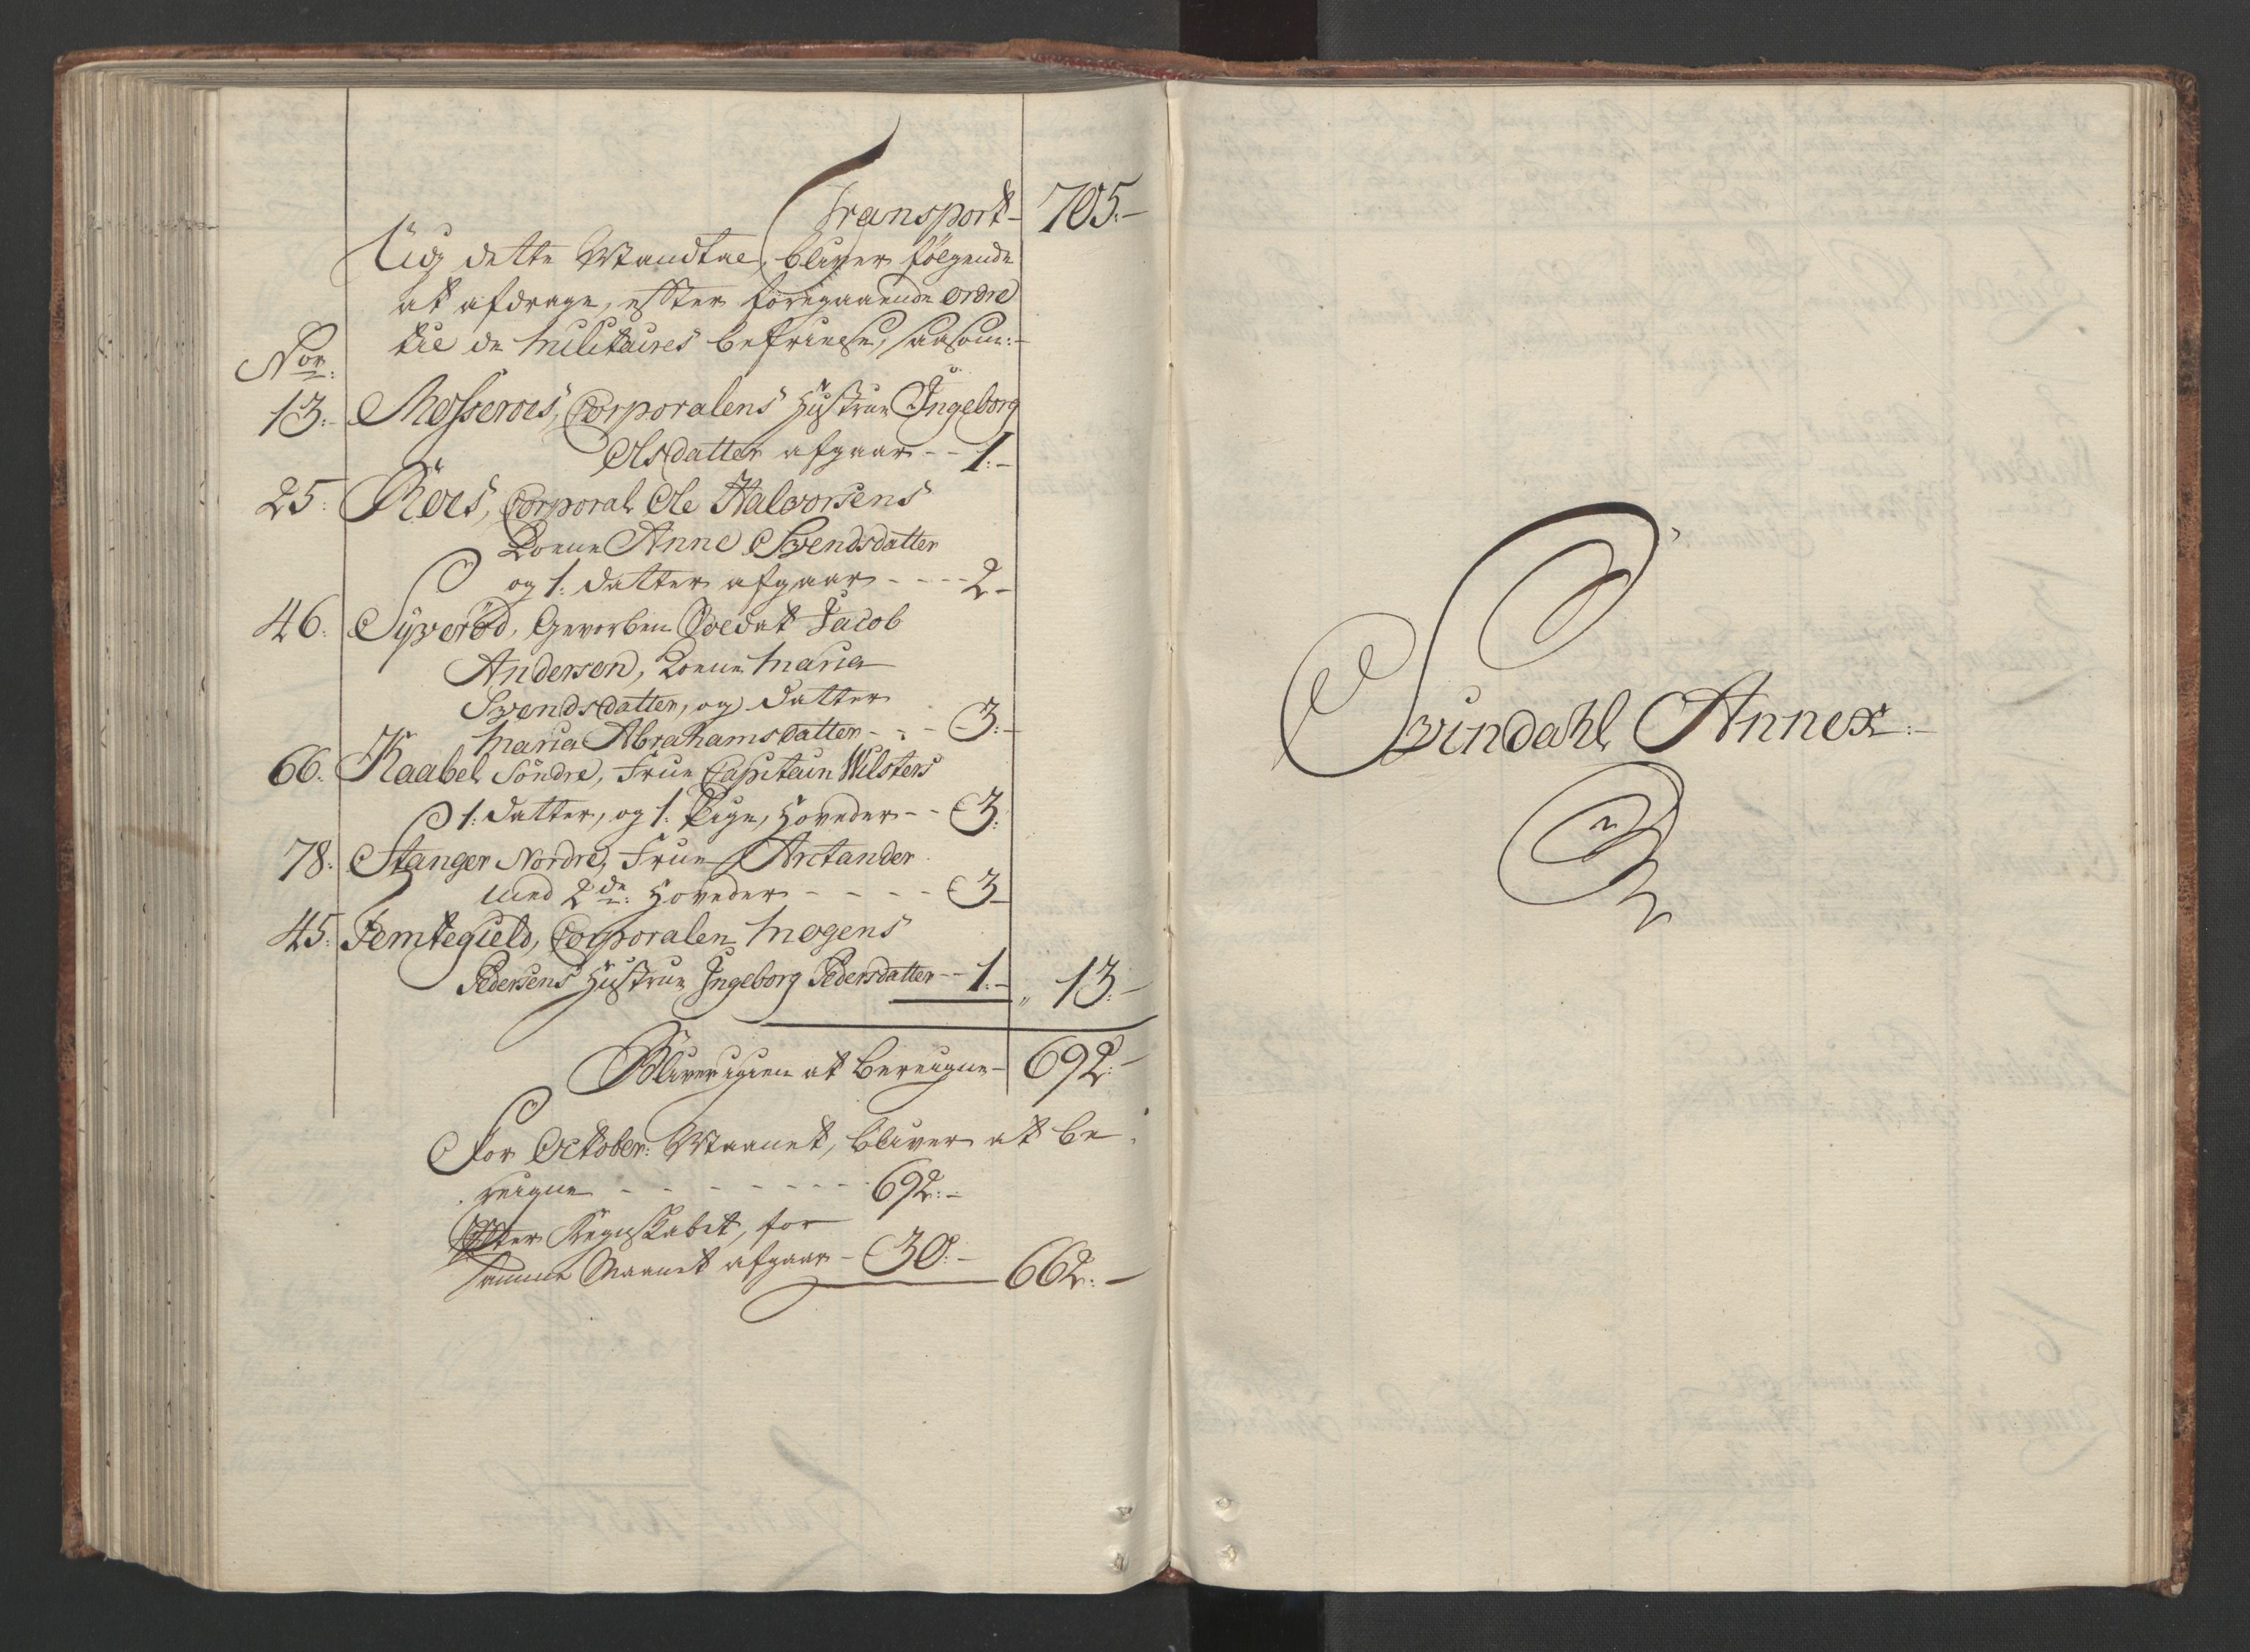 Transport - 705:-
Udj dette Mandtal, bliver følgende
at afdrage, efter foregaaende ordre
til de Militaires befrielse, saasom:-
Nor:
13:- Mosseroes, Corporalens Hustrue Ingeborg
Olsdatter afgaar - - 1:-
25: Röes, Corporal Ole Halvorsens
Konne Anne Svendsdatter
og 1: datter afgaar - - - - 2-
46: Syveröd, Gevorben Soldat Jacob
Andersen, Konne Maria
Svendsdatter, og datter
Maria Abrahamsdatter - - - 3:-
66: Kaabel Söndre, Frue Capitain Wilsters
1: datter, og 1: Pige, Hoveder - - 3:
78: Stanger Nordre, Frue Arctander
med 2de: Hoveder - - - - - 3-
45: Femtegield, Corporalen Mogens
Pedersens Hustrue Ingeborg Pedersdatter - - 1:- " 13:-
Bliver igien at bereigne - 692:-
For October: Maanet, bliver at be-
reigne - - - - - - - - 692:-
Efter Regnskabet, for
samme Maanet afgaar - 30:- 662:-
Svindahl Annex:-